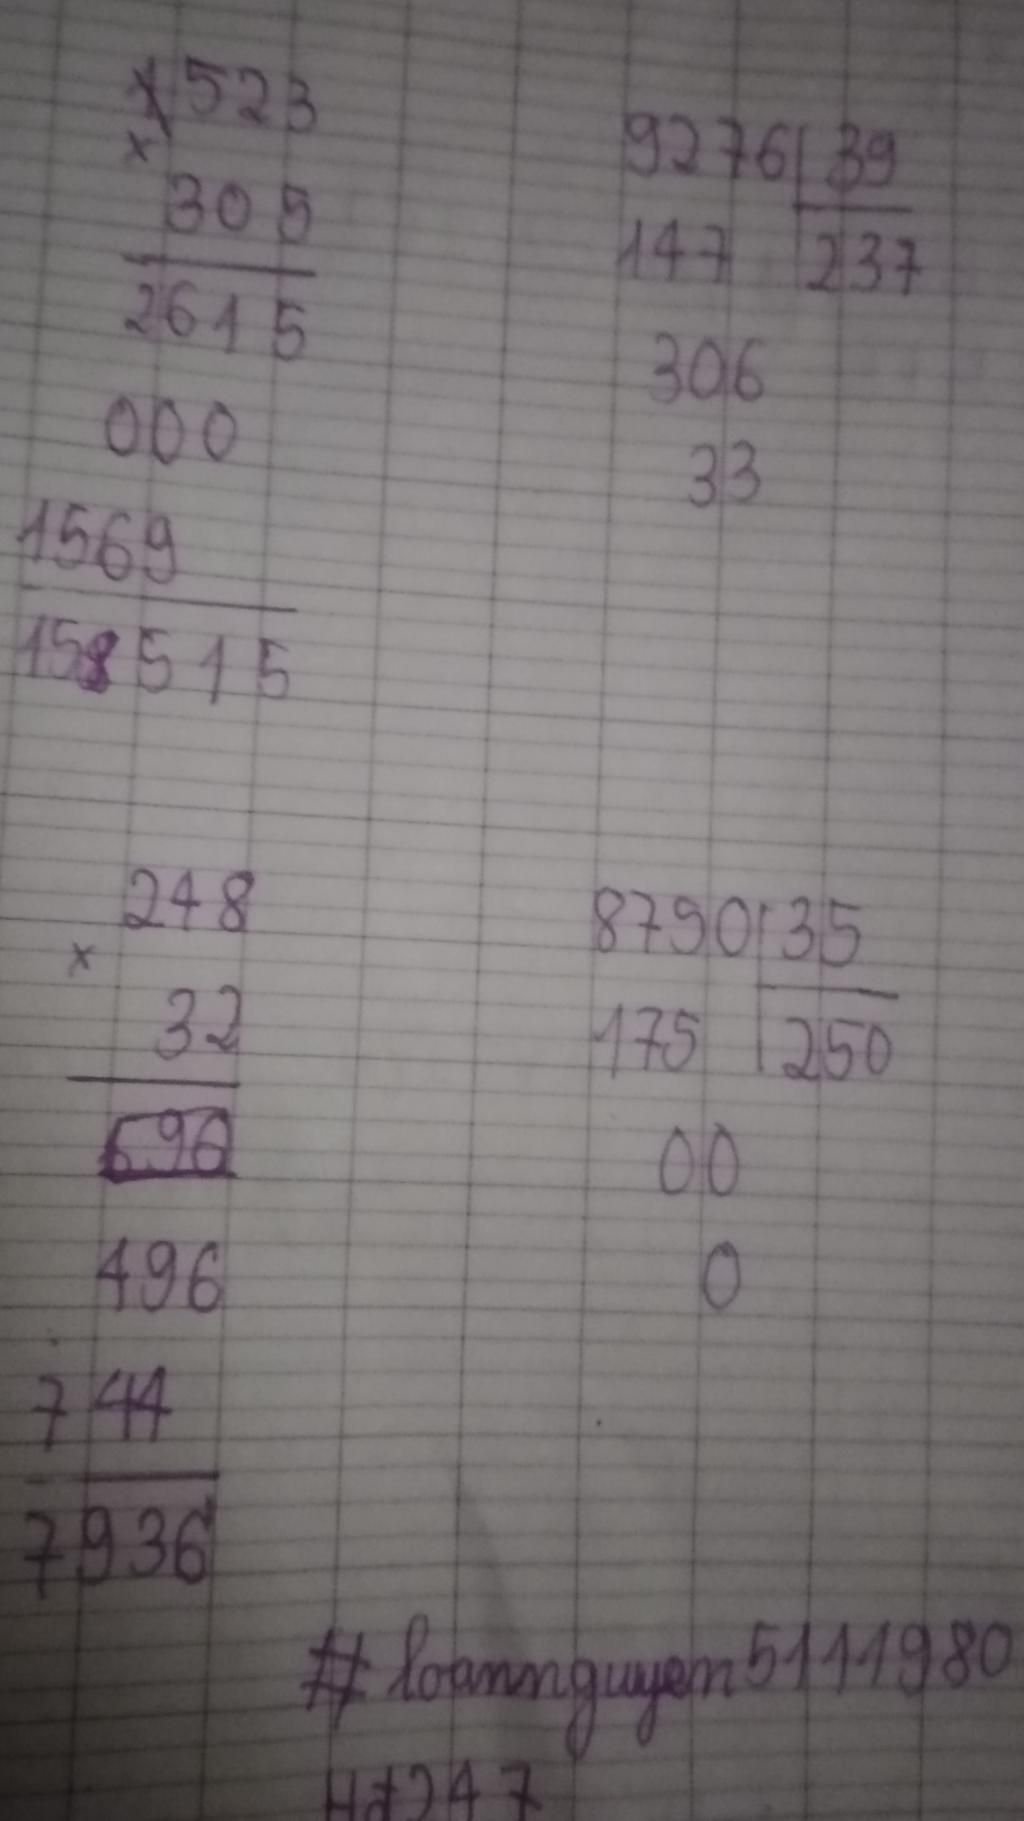 523
×
305
2615
000
1569
158515
9276 39
147 237
306
33
248
×
32
496
744
7936
8790 35
175 250
00
0
#loannguyen5111980
Hd247